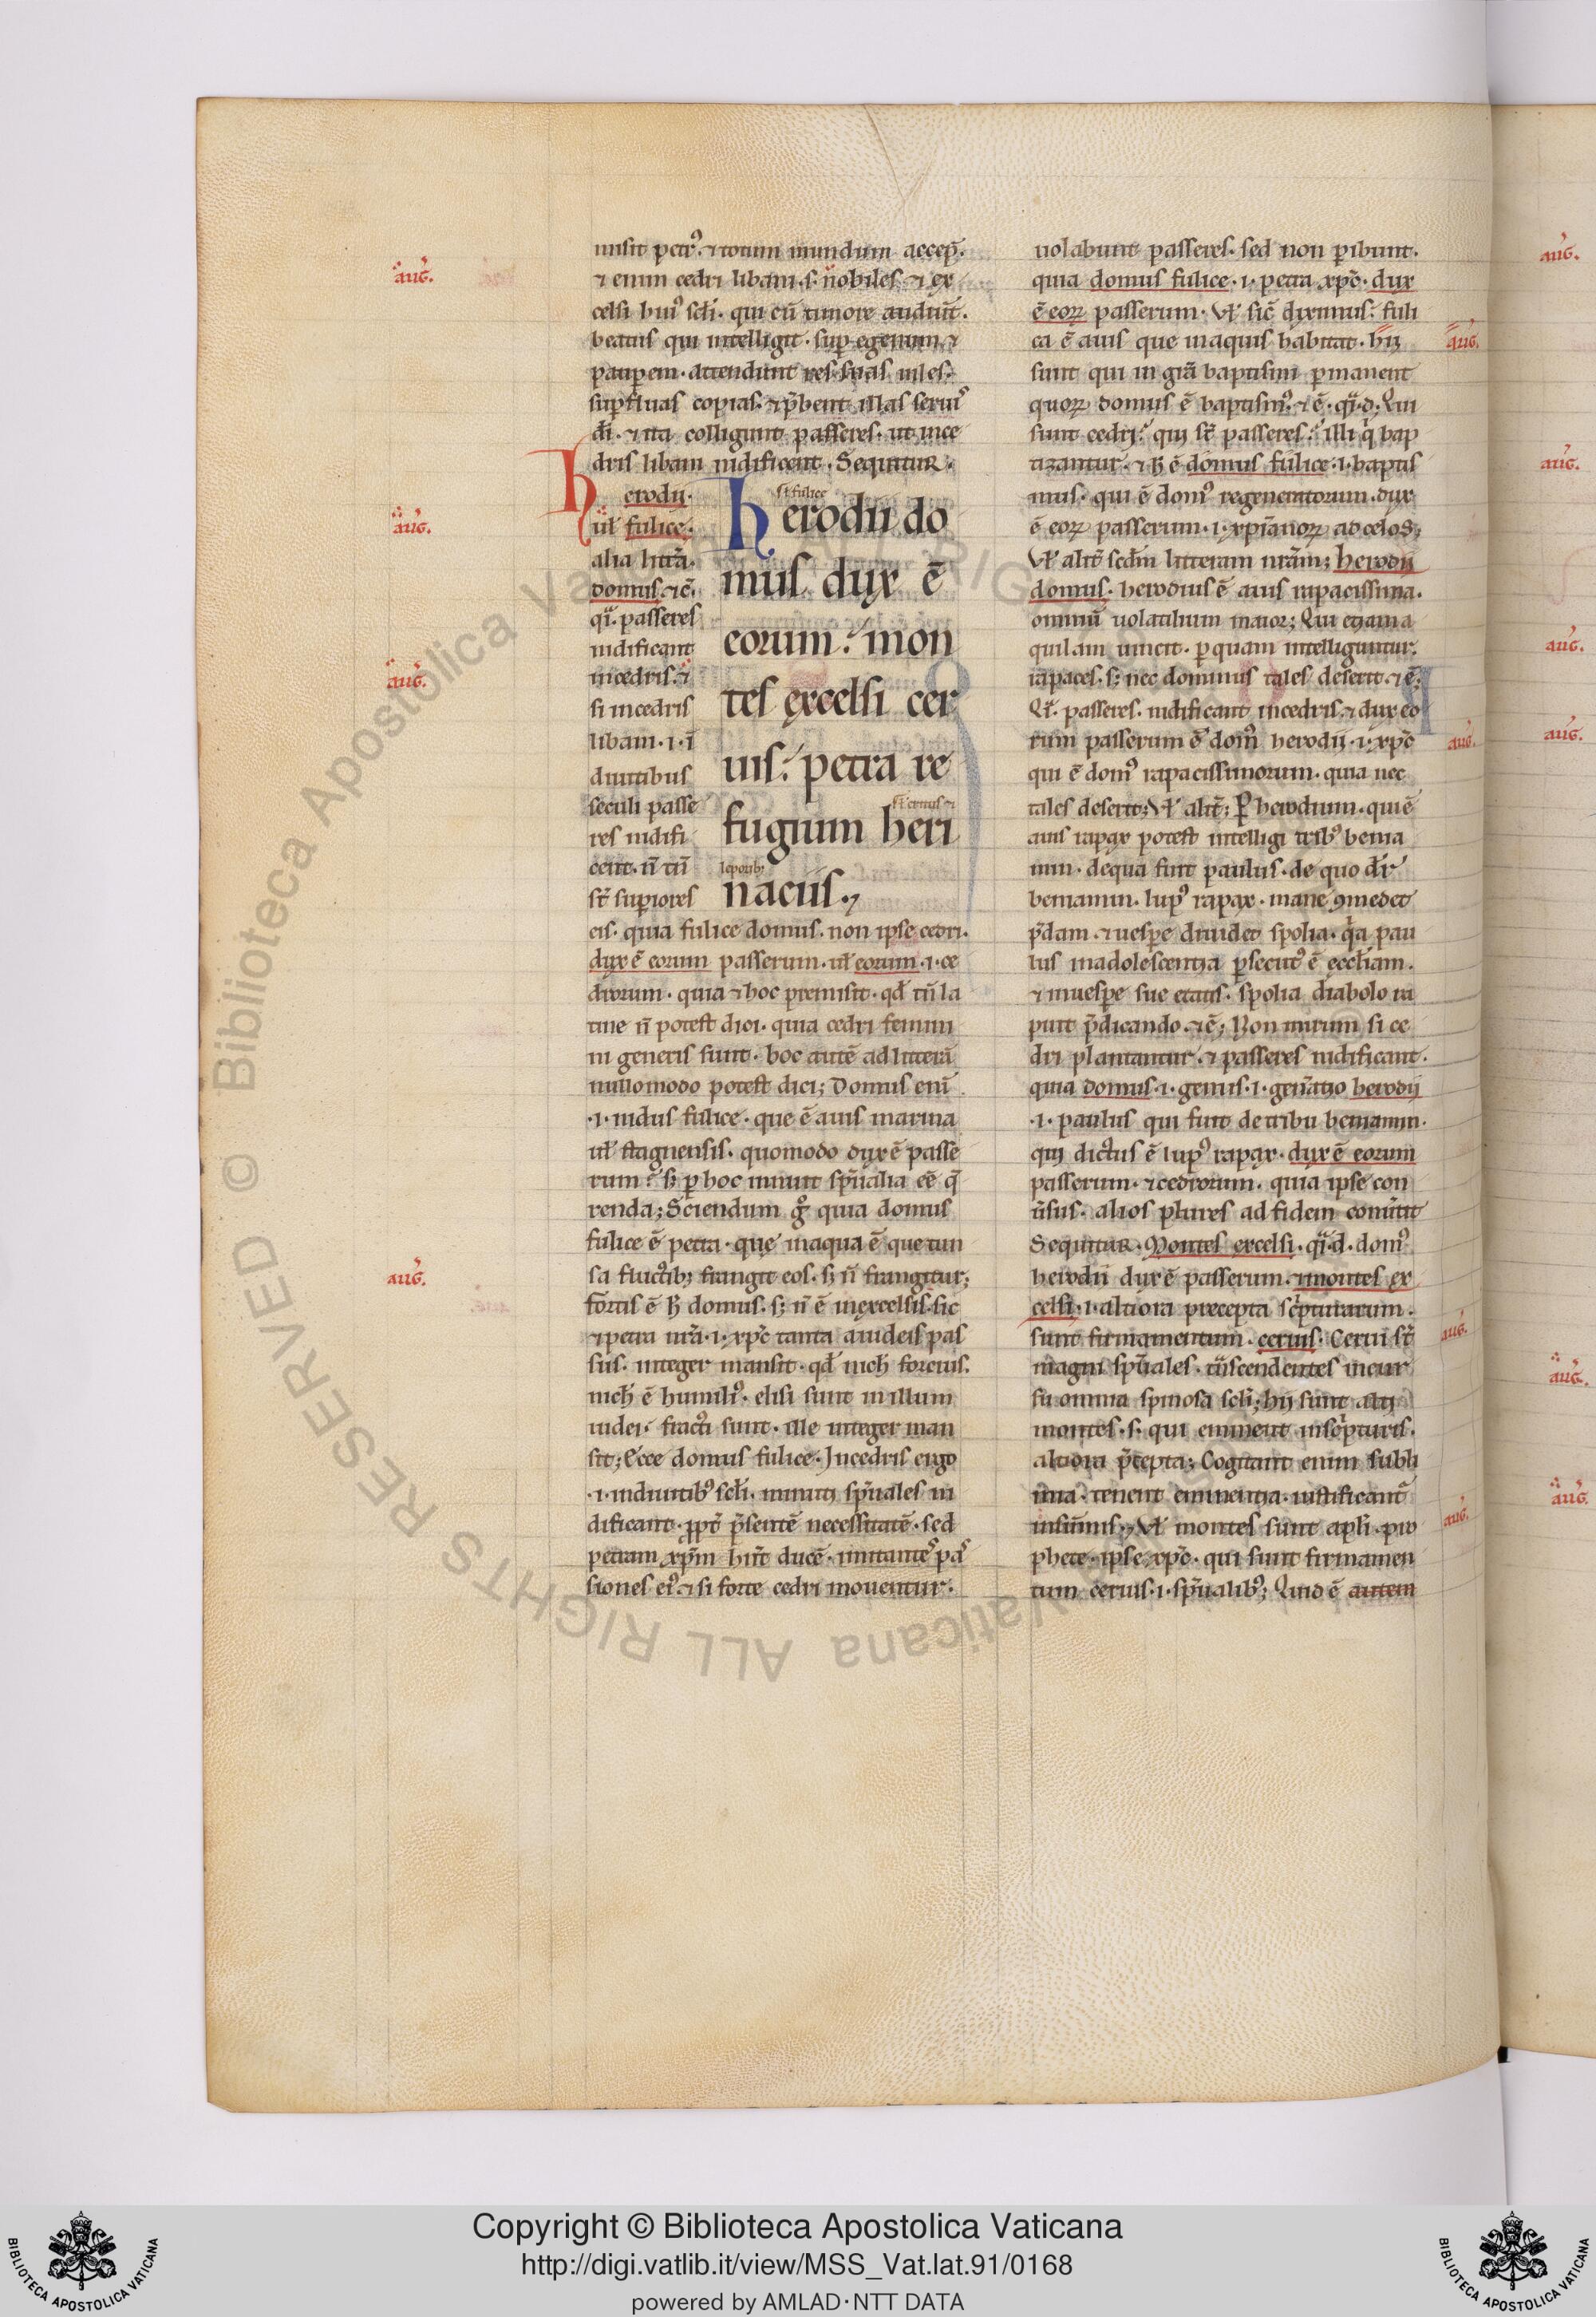 misit petr᷒. ⁊ totum mundum accep̄.
⁊ enim cedri libani .s. nobiles ⁊ ex
celsi hui᷒ scl̄i. qui cū timore audiūt.
beatus qui intelligit. sup̱ egenum ⁊
paup̱em. attendunt res suas uiles.
sup̱fluas copias. ⁊ p̄bent illas seruis
dī. ⁊ ita colligunt passeres. ut in ce
dris libani nidificent. Sequitur.
Herodii.
ul̄ fulice.
alia litt̄a.
domus. ⁊c̄.
q̄i. passeres
nidificant
in cedris. ⁊
si in cedris
libani .i. ī
diuitibus
seculi passe
res nidifi
cent. n̄ tn̄
st̄ superiores
st̄ fulice
Herodii do
mus dux ē
eorum: mon
tes excelsi cer
uis: petra re
fugium heri
leporib;
naciis.
eis. quia fulice domus. non ipse cedri.
dux ē eorum passerum. ul̄ eorum .i. ce
drorum. quia ⁊ hoc premisit. qd̄ tn̄ la
tine n̄ potest dici. quia cedri femini
ni generis sunt. hoc autē ad litterā
nullomodo potest dici; Domus enī
.i. nidus fulice. que ē auis marina
ul̄ stagnensis. quomodo dux ē passe
rum? s; p̱ hoc innuit sp̄ualia eē q̄
renda; Sciendum g̊ quia domus
fulice ē petra. que in aqua ē que tun
sa fluctib; frangit eos. s; n̄ frangitur;
fortis ē h̄ domus. s; n̄ ē in excelsis. sic
⁊ petra nr̄a .i. xp̄c tanta a iudeis pas
sus. integer mansit. qd̄ nich̄ forcius.
nich̄ ē humili᷒. elisi sunt in illum
iudei. fracti sunt. ille integer man
sit; Ecce domus fulice. In cedris ergo
.i. in diuitib᷒ scl̄i. minuti sp̄uales ni
dificant. ꝓpt̄ p̄sentē necessitatē. sed
petram xp̄m hn̄t ducē. imitantes pas
siones ei᷒. ⁊ si forte cedri mouentur.
uolabunt passeres. sed non p̱ibunt.
quia domus fulice .i. petra xp̄c. dux
ē eoꝝ passerum. Vl̄ sic̄ diximus: fuli
ca ē auis que in aquis habitat. hii
sunt qui in gr̄a baptismi p̱manent
quoꝝ domus ē baptism᷒. ⁊ ē. q̄i.d. Qui
sunt cedri? qui st̄ passeres? illi q̄ bap
tizantur. ⁊ h̄ ē domus fulice .i. baptis
mus. qui ē dom᷒ regeneratorum. dux
ē eoꝝ passerum .i. xp̄ianoꝝ ad celos;
Vl̄ alit̄ scd̄m litteram nr̄am; herodii
domus. herodius ē auis rapacissima.
omniū uolatilium maior; Qui etiam a
quilam uincit. p̱ quam intelliguntur.
rapaces. s; nec dominus tales deserit. ⁊ ē.
Q̄i. passeres. nidificant in cedris. ⁊ dux eo
rum passerum ē dom᷒ herodii .i. xp̄c
qui ē dom᷒ rapacissimorum. quia nec
tales deserit; Vl̄ alit̄; P̱ herodium. qui ē
auis rapax potest intelligi trib᷒ benia
min. de qua fuit paulus. de quo dr̄
beniamin. lup᷒ rapax. mane ꝯmedet
p̄dam. ⁊ uesp̱e diuidet spolia. q̄a pau
lus in adolescentia p̱secut᷒ ē eccl̄iam.
⁊ in uesp̱e sue etatis. spolia diabolo ra
puit p̄dicando. ⁊ ē; Non mirum si ce
dri plantantur. ⁊ passeres nidificant.
quia domus .i. genus .i. gen̄atio herodii
.i. paulus qui fuit de tribu beniamin.
qui dictus ē lup᷒ rapax. dux ē eorum
passerum. ⁊ cedrorum. quia ipse con
ūsus. alios plures ad fidem conūtit
Sequitur. Montes excelsi. q̄i.d. dom᷒
herodii dux ē passerum. ⁊ montes ex
celsi .i. altiora precepta sc̄pturarum.
sunt firmamentum. ceruis. Cerui st̄
magni sp̄uales. t̄nscendentes in cur
su omnia spinosa scl̄i; hii sunt alti
montes .s. qui eminent in sc̄pturis.
altiora p̄cepta; Cogitant enim subli
mia. tenent eminentia. iustificant̄
in sūmis. Vl̄ montes sunt apl̄i. pro
phete. ipse xp̄c. qui sunt firmamen
tum ceruis .i. sp̄ualib᷒; Quid ē autem
aug̓.
aug̓.
aug̓.
aug̓.
aug̓.
aug̓.
aug̓.
aug̓.
aug̓.
aug̓.
aug̓.
aug̓.
aug̓.
aug̓.
Copyright © Biblioteca Apostolica Vaticana
http://digi.vatlib.it/view/MSS_Vat.lat.91/0168
powered by AMLAD·NTT DATA
BIBLIOTECA APOSTOLICA VATICANA
BIBLIOTECA APOSTOLICA VATICANA